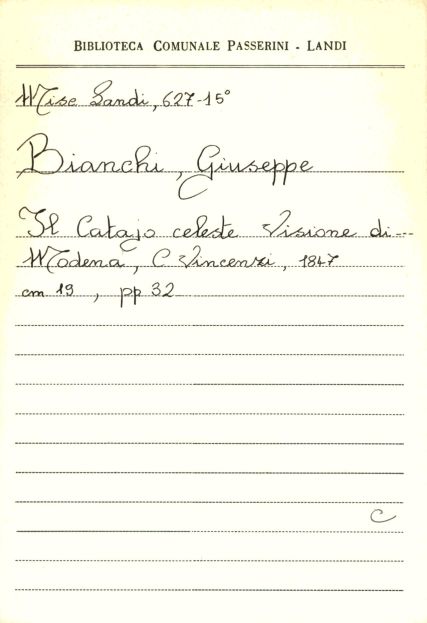 BIBLIOTECA COMUNALE PASSERINI - LANDI
Misc Landi, 627-15°
Bianchi, Giuseppe
Il Catajo celeste Visione di---
Modena, C. Vincenzi, 1847
cm 19, pp 32
C